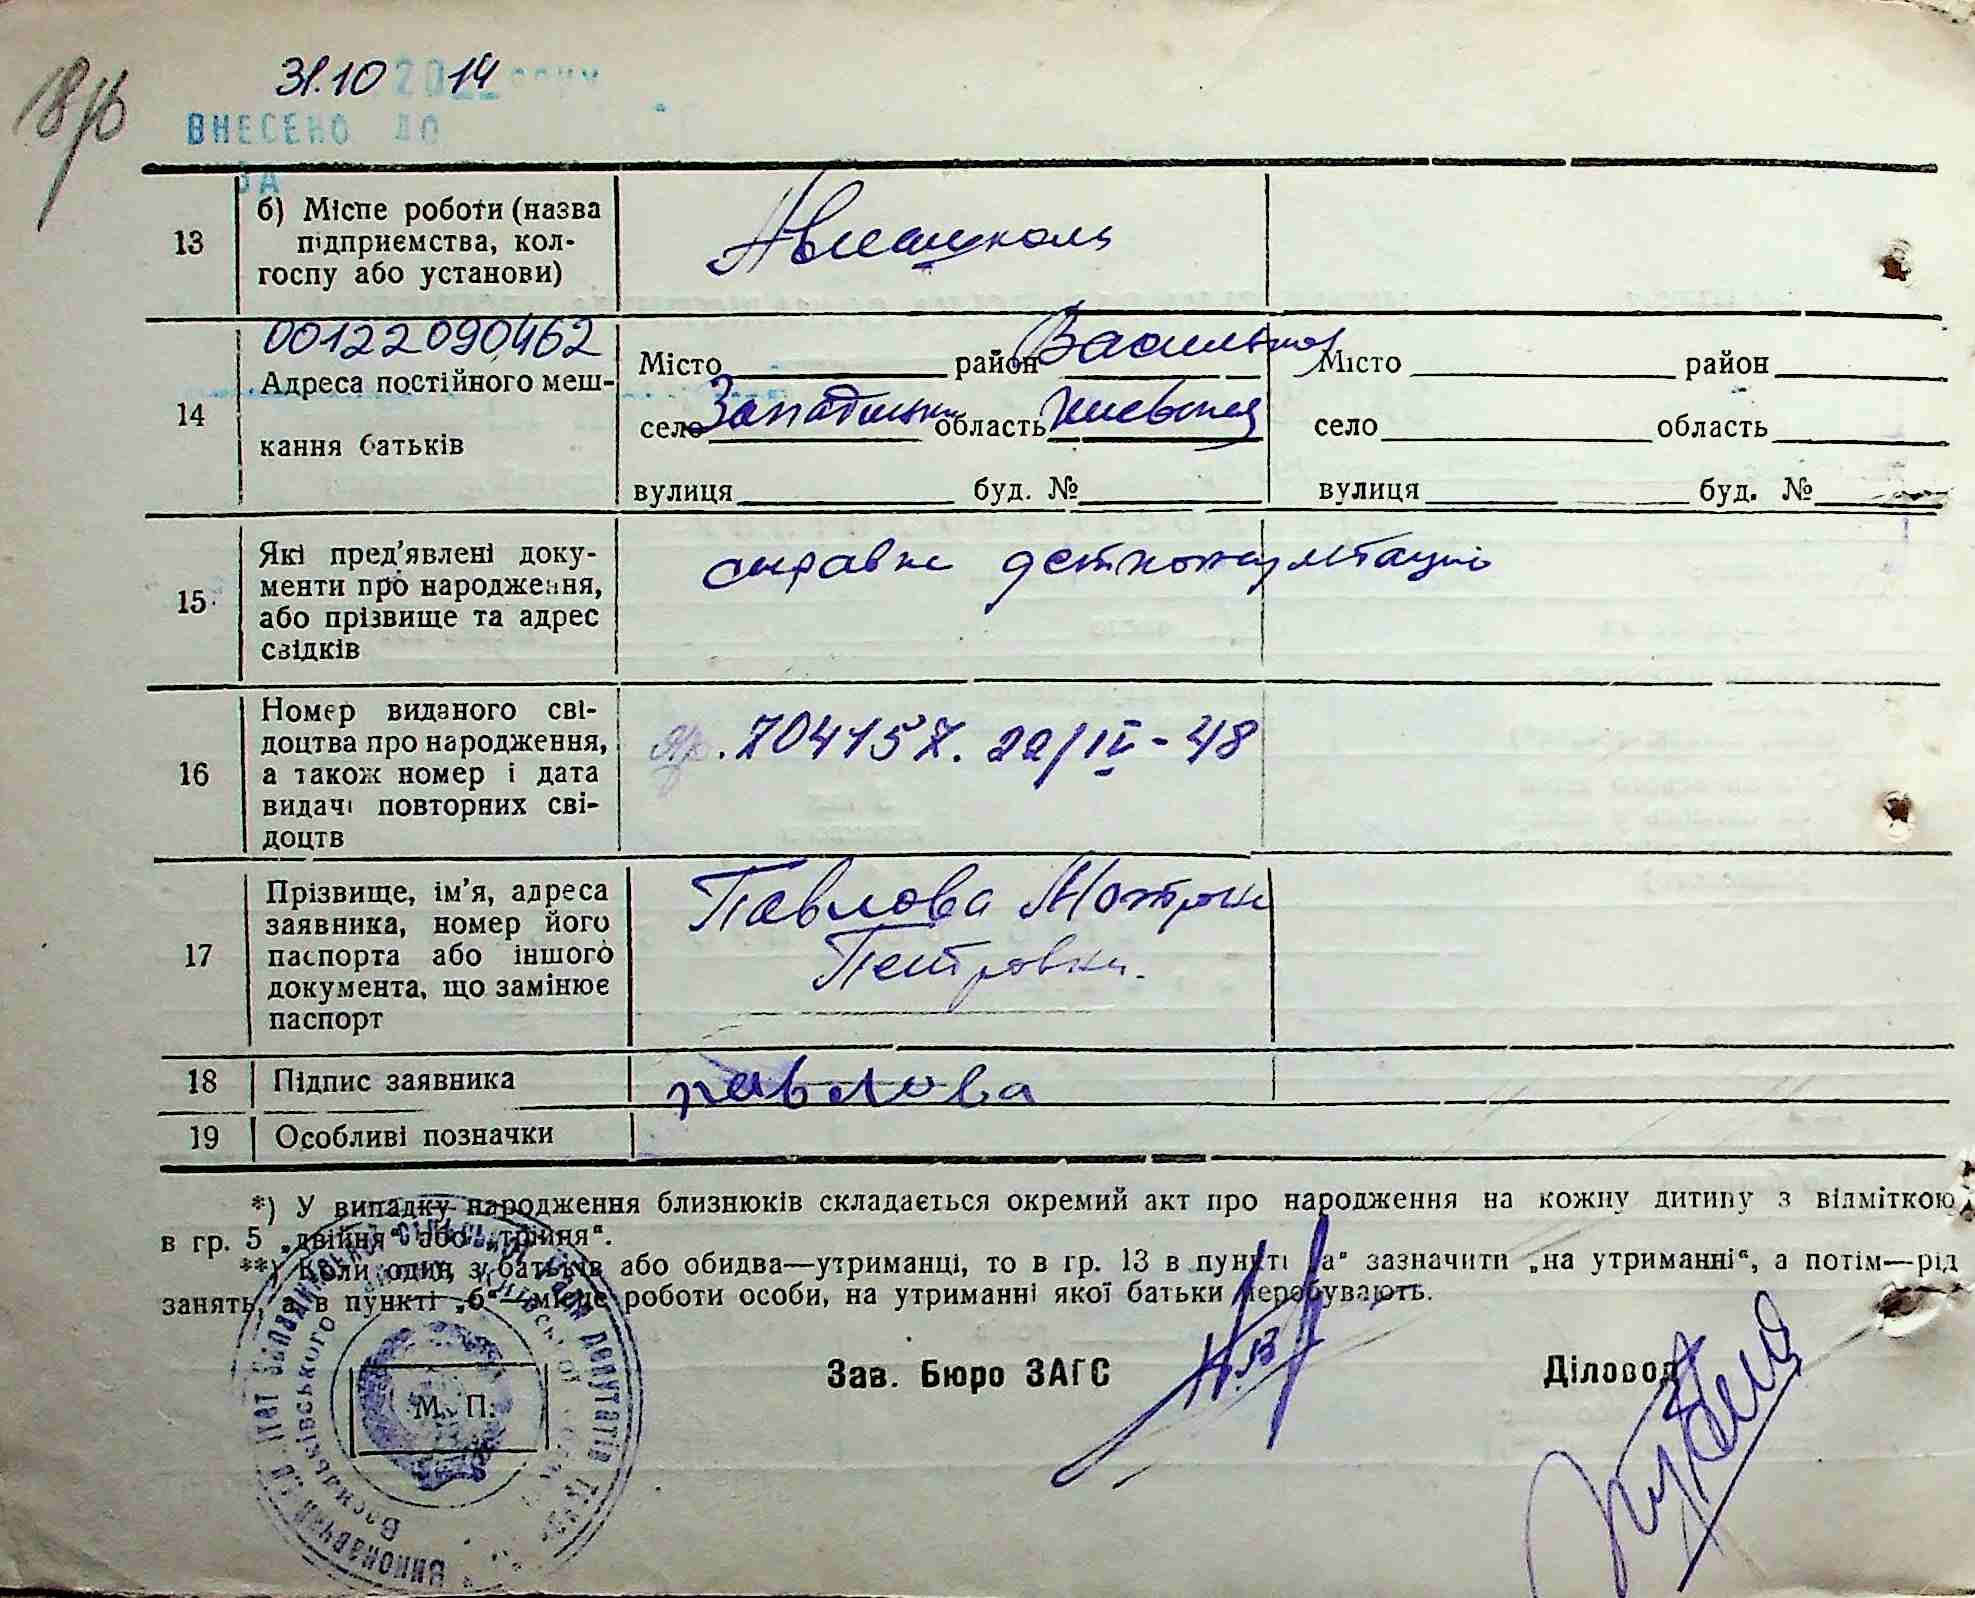 31.10 2014 року
ВНЕСЕНО ДО
ЗА
13
б) Місце роботи (назва
підприємства, кол-
госпу або установи)
Авиашкола
001220904​62
14
Адреса постійного меш-
кання батьків
Місто район Васильков
село Западинка область Киевская
вулиця буд. №
Місто район
село область
вулиця буд. №
15
Які пред’явлені доку-
менти про народження,
або прізвище та адрес
свідків
справка детконсультации
16
Номер виданого сві-
доцтва про народження,
а також номер і дата
видачі повторних сві-
доцтв
704157. 22/IV-48
17
Прізвище, ім’я, адреса
заявника, номер його
паспорта або іншого
документа, що замінює
паспорт
Павлова Мотрона
Петровна.
18
Підпис заявника
павлова
19
Особливі позначки
*) У випадку народження близнюків складається окремий акт про народження на кожну дитину з відміткою
в гр. 5 „двійня“ або „трійня“.
**) Коли один з батьків або обидва—утриманці, то в гр. 13 в пункті „а“ зазначити „на утриманні“, а потім—рід
занять, а в пункті „б“—місце роботи особи, на утриманні якої батьки перебувають.
М. П.
Зав. Бюро ЗАГС
Діловод